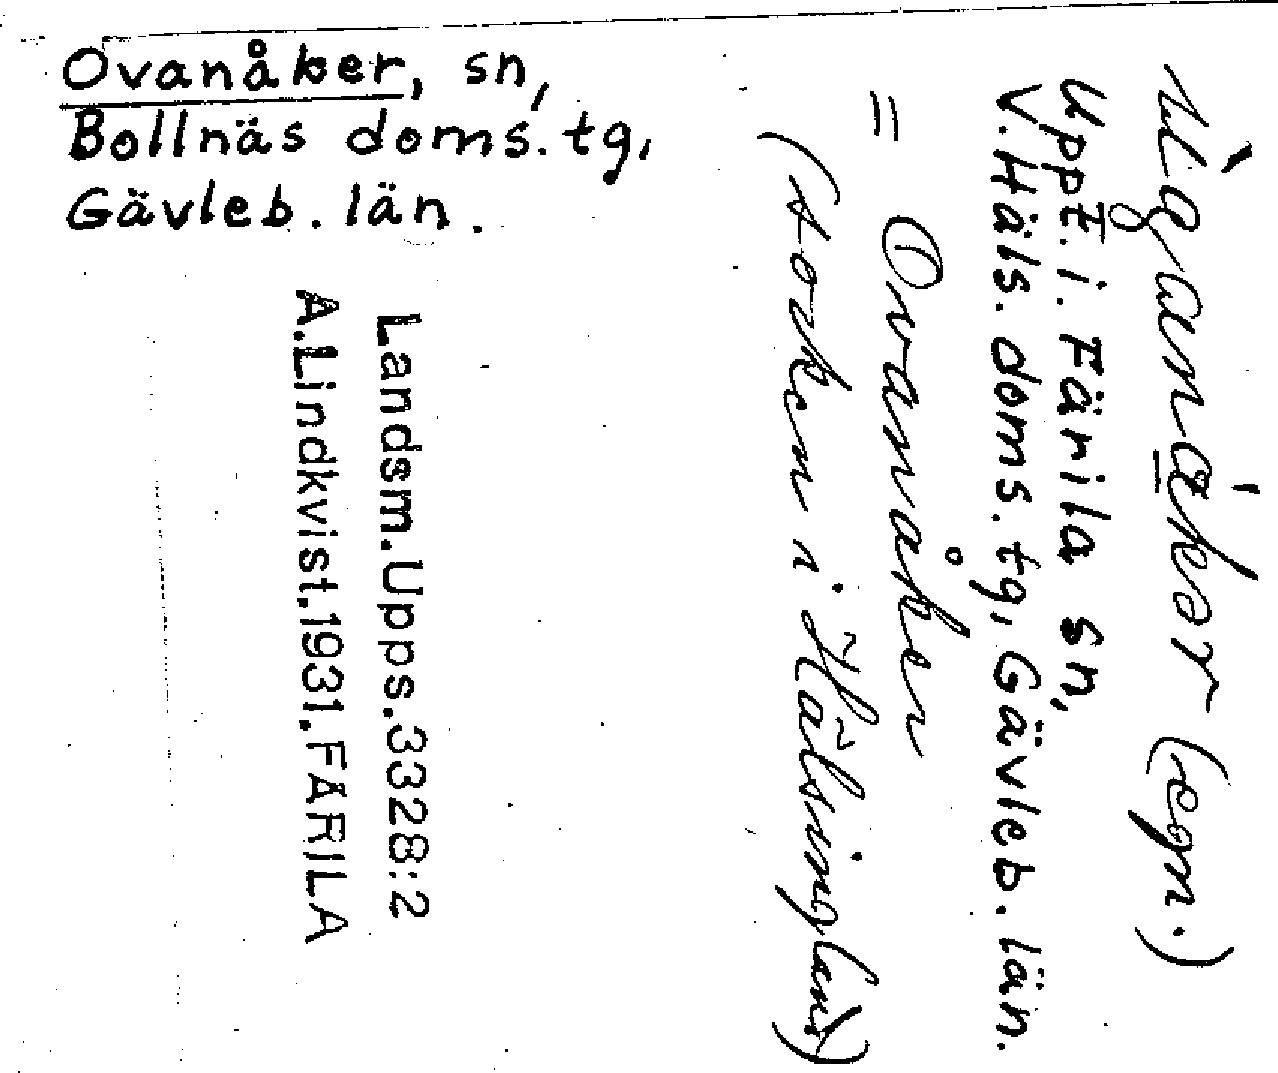 Ovanåker, sn,
Bollnäs doms. tg,
Gävleb. län.
(egn.)
Uppt. i. Färila sn,
V. Häls. doms. tg, Gävleb. län.
= Ovanåker
(socken i Hälsingland)
Landsm. Upps. 3328:2
A. Lindkvist. 1931. FÄRILA